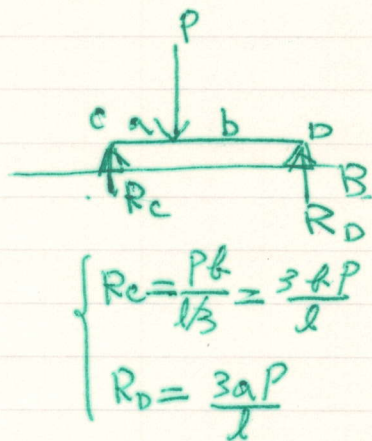 P
C a b D
B
Rc
R_D
Rc = Pb / l/3 = 3bP / l
R_D = 3aP / l